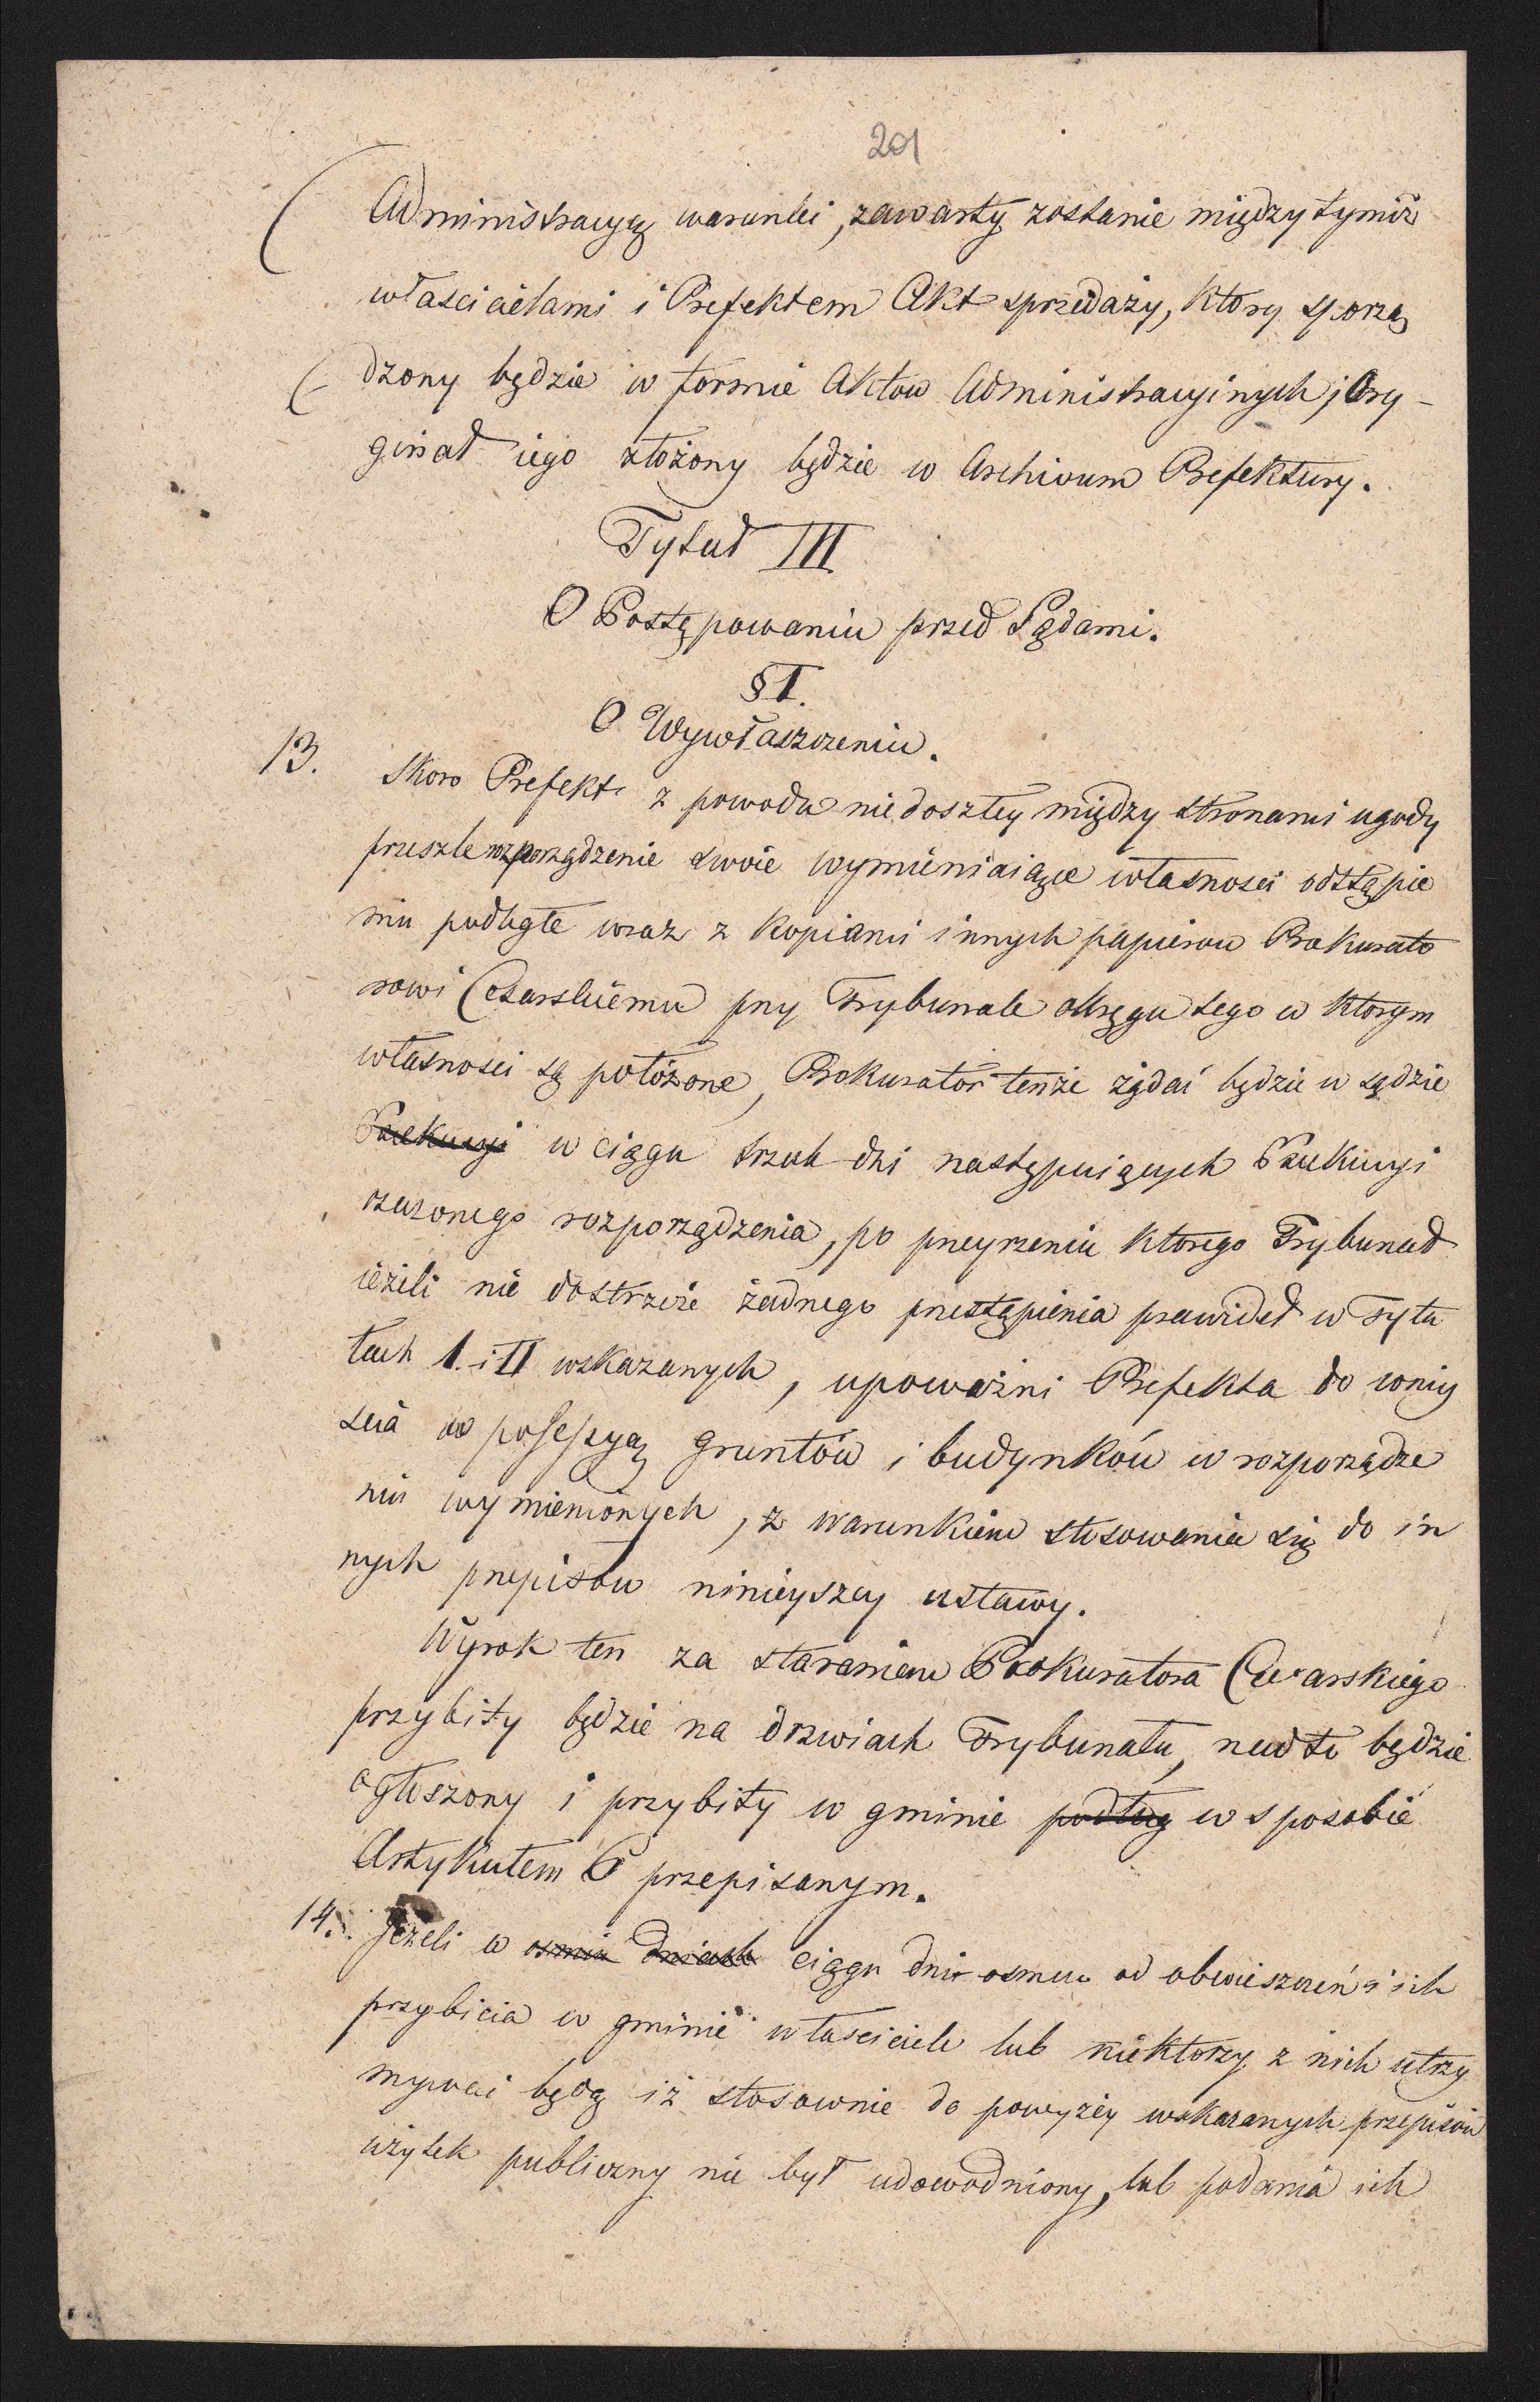 201
Administracyą warunki, zawarty zostanie między tymiż
właścicielami i Prefektem Akt sprzedaży, który sporzą
dzony będzie w formie Aktow Administracyinych; Ory-
ginał iego złożony będzie w Archivum Prefektury.
Tytuł III
O Postępowaniu przed Sądami.
§ I.
O Wywłaszczeniu.
13. Skoro Prefekt z powodu niedoszłey między stronami ugody
prześle rozporządzenie swoie wymieniaiące własności odstąpie
niu podległe wraz z kopiami innych papierow Prokurato
rowi Cesarskiemu przy Trybunale okręgu tego w ktorym
własności są położone, Prokurator tenże żądać będzie w sądzie
Exekucyi w ciągu trzech dni następuiących Exekucyi
rzeczonego rozporządzenia, po przeyrzeniu ktorego Trybunał
ieżeli nie dostrzeże żadnego przestąpienia prawideł w Tytu
łach I. i II wskazanych, upoważni Prefekta do weniy
scia w possessyą gruntów i budynków w rozporządze
niu wymienionych, z warunkiem stosowania się do in
nych przepisów ninieyszey ustawy.
Wyrok ten za staraniem Prokuratora Cesarskiego
przybity będzie na drzwiach Trybunału, nadto będzie
ogłoszony i przybity w gminie podług w sposobie
Artykułem 6 przepisanym.
14. Jeżeli w osmiu dniach ciągu dni osmiu od obwieszczeń i ich
przybicia w gminie właściciele lub niektorzy z nich utrzy
mywać będą iż stosownie do powyżey wskazanych przepisów
użytek publiczny nie był udowodniony, lub podania ich